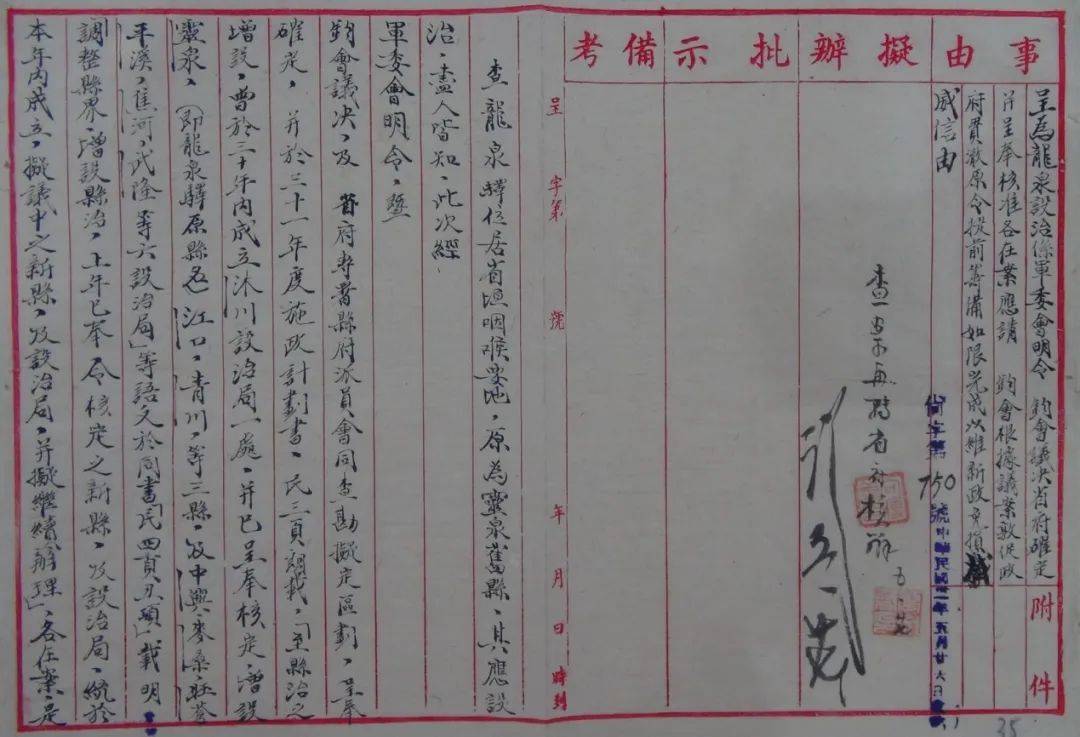 事由
擬辦
批示
備考
附件
呈為龍泉設治係軍委會明令 鈞會議決省府確定
并呈奉核准各在案應請 鈞會根據議案敦促政
府貫澈原令提前籌備如限完成以維新政免損
威信由
字第750號中華民國卅一年五月廿八日
查案再函省府核辦
呈 字第 號 年 月 日 時到
查龍泉驛位居省垣咽喉要地，原為靈泉舊縣，其應設
治，盡人皆知，此次經
軍委會明令，暨
鈞會議決，及 省府專署縣府派員會同查勘擬定區劃，呈奉
確定，并於三十一年度施政計劃書，民三頁詔載，「至縣治之
增設，曾於三十年內成立沐川設治局一處，并已呈奉核定，增設
靈泉，（即龍泉驛原縣名）江口，青川，等三縣，及中興，麥桑，旺蒼
平溪，焦河，武隆等六設治局」等語又於同書「民四頁丑項」載明
調整縣界，增設縣治，上年已奉 令核定之新縣，及設治局，統於
本年內成立，擬議中之新縣，及設治局，并擬繼續辦理」，各在案，是
35